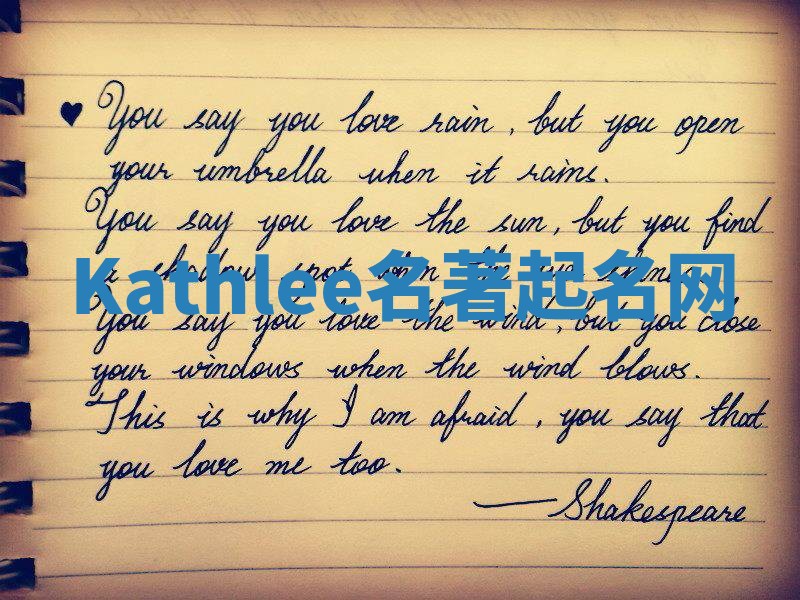 ♥ You say you love rain, but you open
your umbrella when it rains.
You say you love the sun, but you find
a shadow spot when the sun shines.
Kathlee名著起名网
You say you love the wind, but you close
your windows when the wind blows.
This is why I am afraid, you say that
you love me too.
— Shakespeare